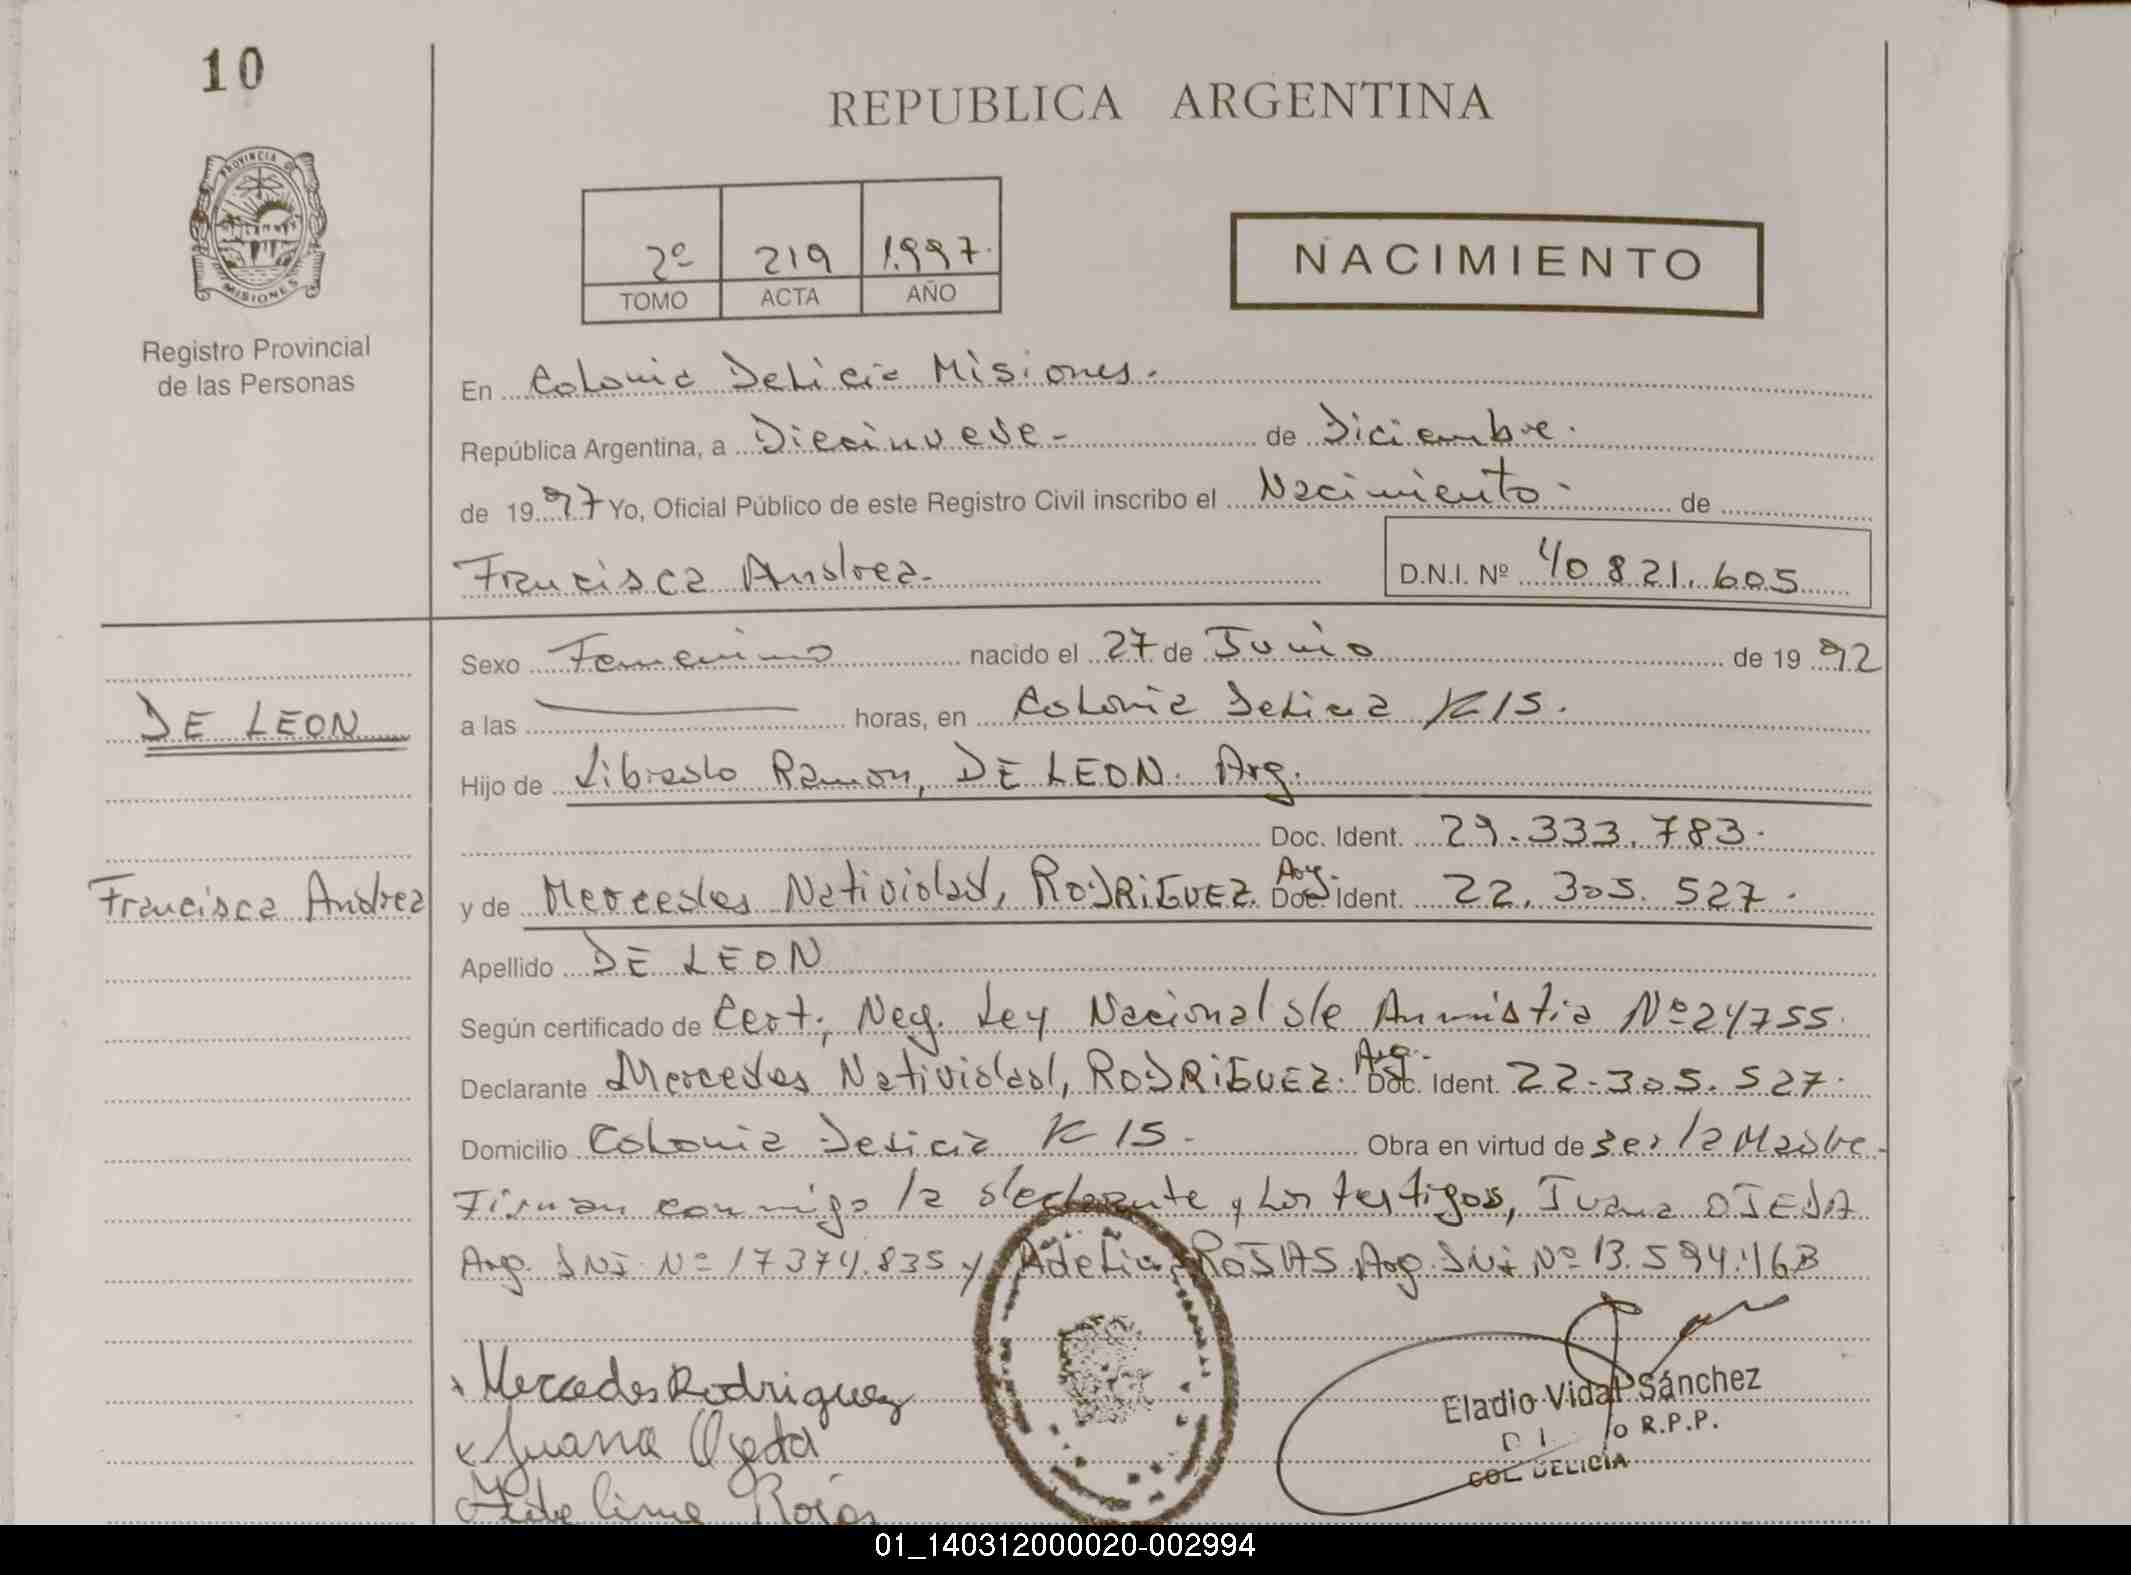 10
REPUBLICA ARGENTINA
PROVINCIA DE
MISIONES
Registro Provincial
de las Personas
2º 219 1.997.
TOMO ACTA AÑO
NACIMIENTO
En Colonia Delicia Misiones.
República Argentina, a Diecinueve - de Diciembre.
de 1997 Yo, Oficial Público de este Registro Civil inscribo el Nacimiento - de
Francisca Andrea. D.N.I. Nº 40 821.605
Sexo Femenino nacido el 27 de Junio de 1992
DE LEON
a las horas, en Colonia Delicia K 15.
Hijo de Librado Ramon, DE LEON. Arg.
Doc. Ident. 29.333.783.
Francisca Andrea
y de Mercedes Natividad, RODRIGUEZ. Arg. Doc. Ident. 22.305.527.
Apellido DE LEON
Según certificado de Cert. Neg. Ley Nacional de Amnistia Nº 24755.
Declarante Mercedes Natividad, RODRIGUEZ. Arg. Doc. Ident. 22.305.527.
Domicilio Colonia Delicia K 15. Obra en virtud de ser la Madre.-
Firman conmigo la declarante y los testigos, Juana OJEDA
Arg. DNI Nº 17374.835 y Adelia ROJAS Arg. DNI Nº 13.594.168
Mercedes Rodriguez
Juana Ojeda
Rojas
Eladio Vidal Sánchez
R.P.P.
COL DELICIA
01_140312000020-002994